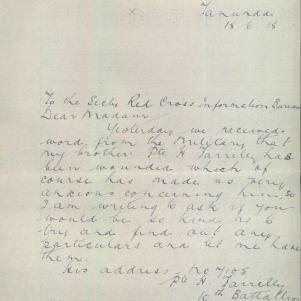 Tanunda
18.6.18
To the Secty Red Cross Information Bureau
Dear Madam
Yesterday we received
word from the Military that
my brother Pte H Farrelly has
been wounded which of
course has made us very
anxious concerning him, so
I am writing to ask if you
would be so kind as to
try and find out any
particulars and let me have
them.
His address No 7108
Pte H. Farrelly
10th Battalion